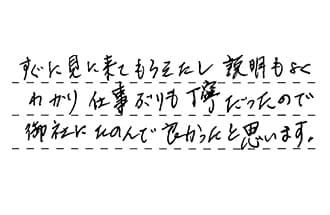 すぐに見に来てもらえたし 説明もよく
わかり 仕事ぶりも丁寧だったので
御社にたのんで良かったと思います。